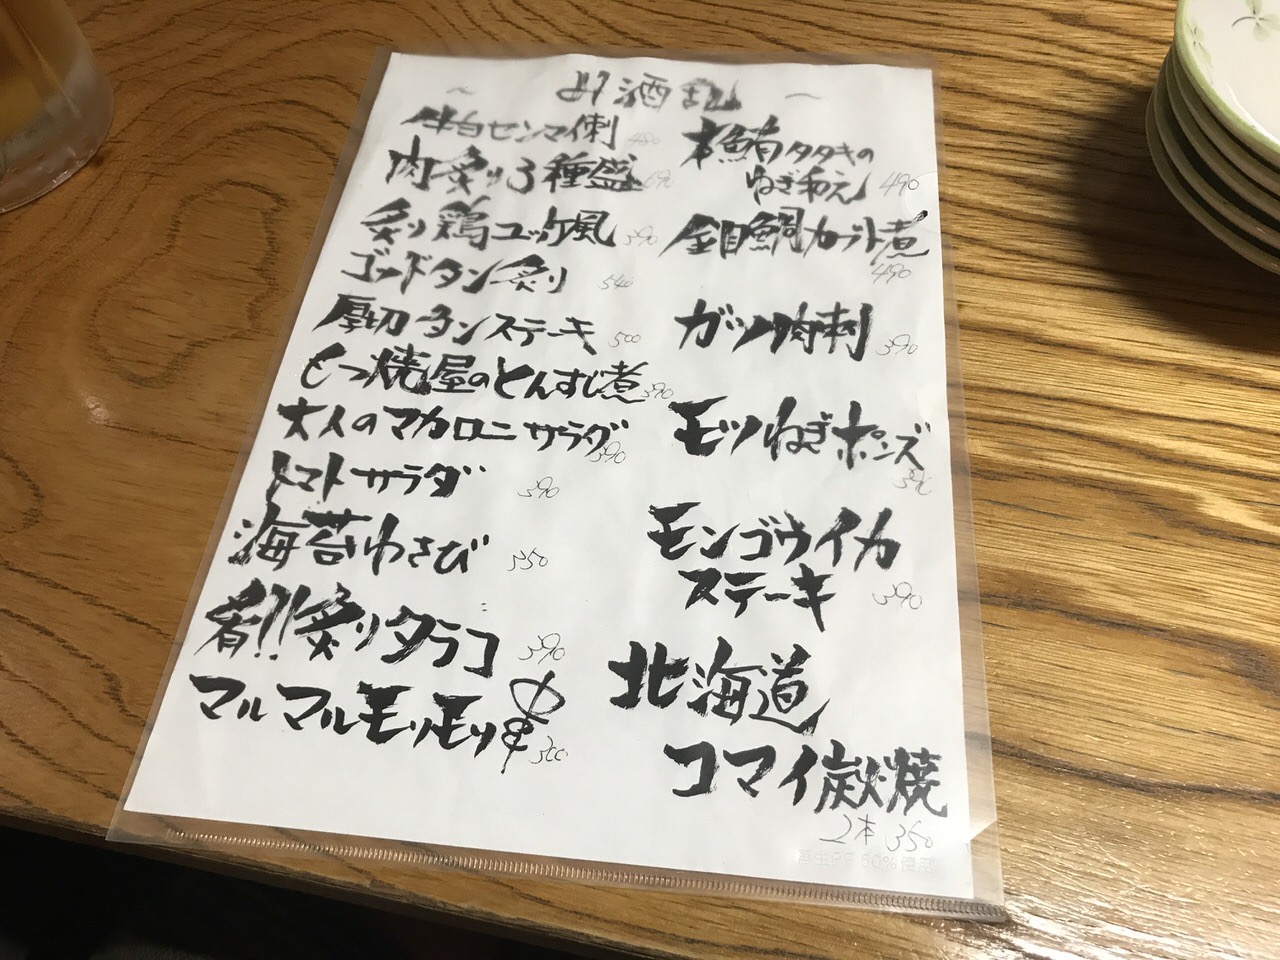 牛白センマイ刺 480
肉炙り3種盛 690
炙り鶏ユッケ風 390
ゴッドタン炙り 540
厚切タンステーキ 500
もつ焼屋のとんすじ煮 390
大人のマカロニサラダ 390
トマトサラダ 390
海苔わさび 350
肴!!炙りタラコ 390
マルマルモリモリ串 300
本鮪タタキの
ねぎ和え 490
金目鯛カブト煮
490
ガツ肉刺 390
モツねぎポンズ
390
モンゴウイカ
ステーキ 390
北海道
コマイ炭火焼
2本 350